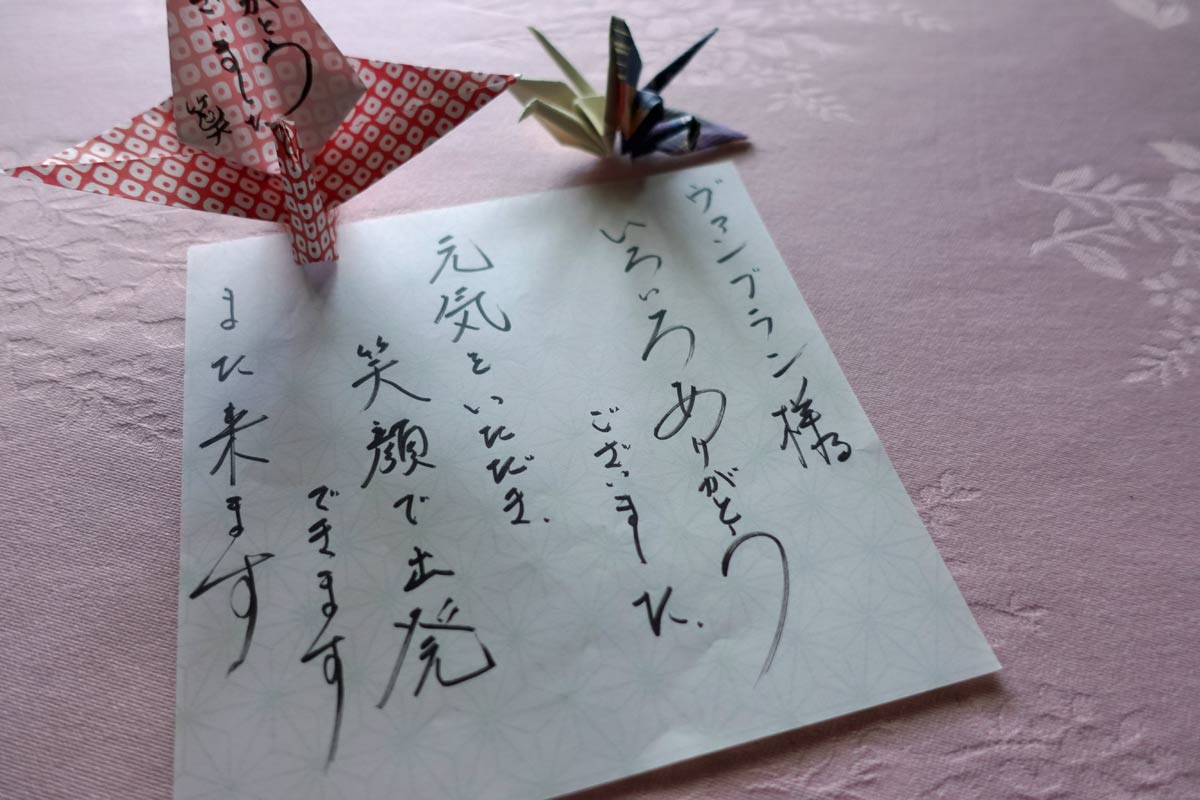 ヴァンブラン様
いろいろありがとう
ございました.
元気をいただき.
笑顔で出発
できます
また来ます
がとう
ざいました
笑